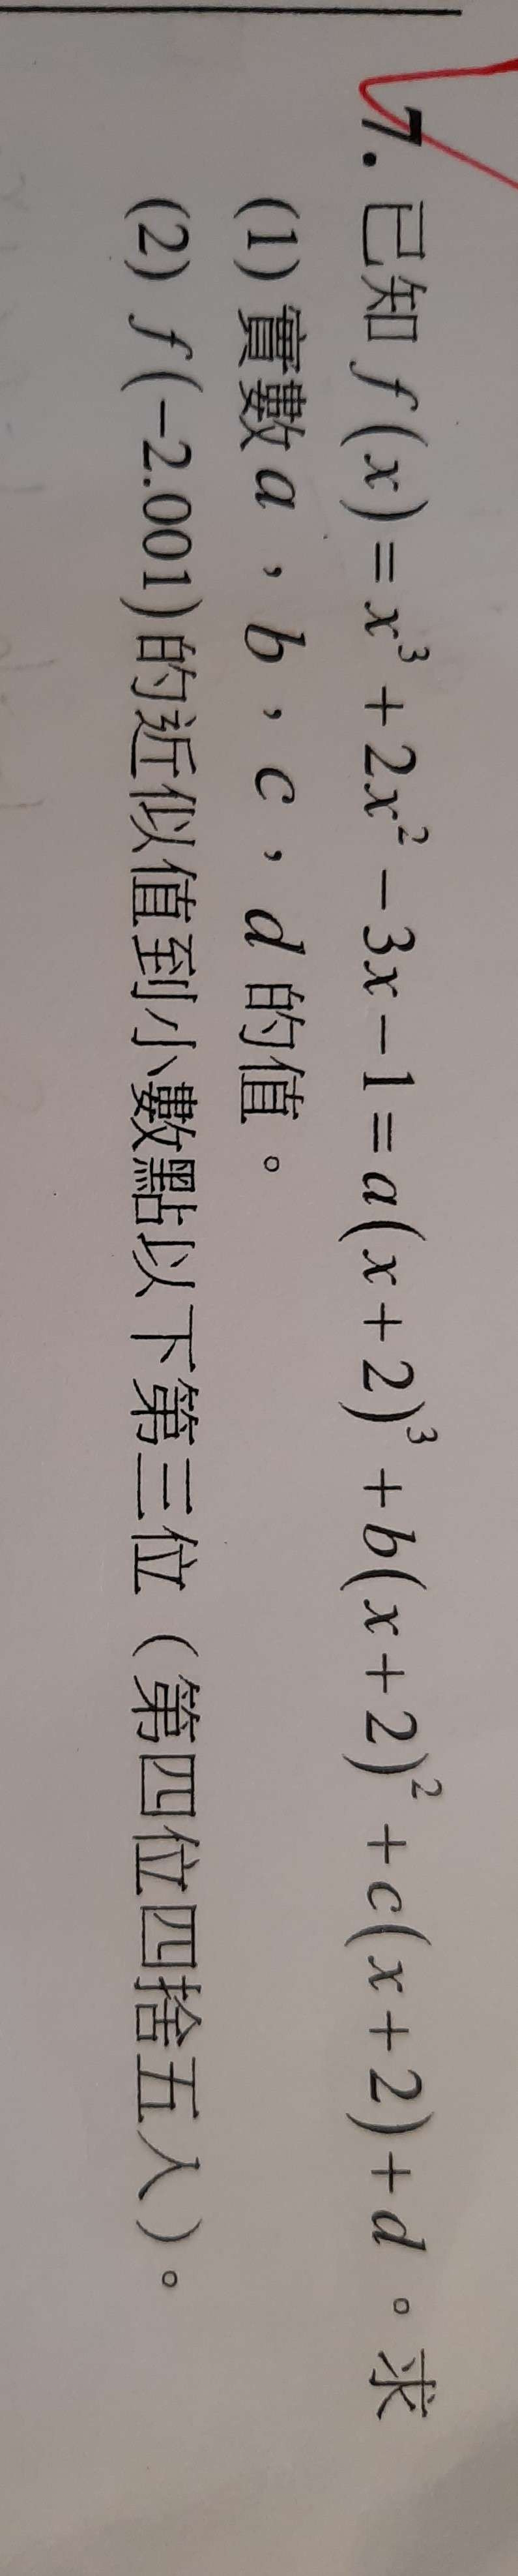 7. 已知 f(x)=x³+2x²−3x−1=a(x+2)³+b(x+2)²+c(x+2)+d。求
(1) 實數a，b，c，d的值。
(2) f(−2.001)的近似值到小數點以下第三位（第四位四捨五入）。